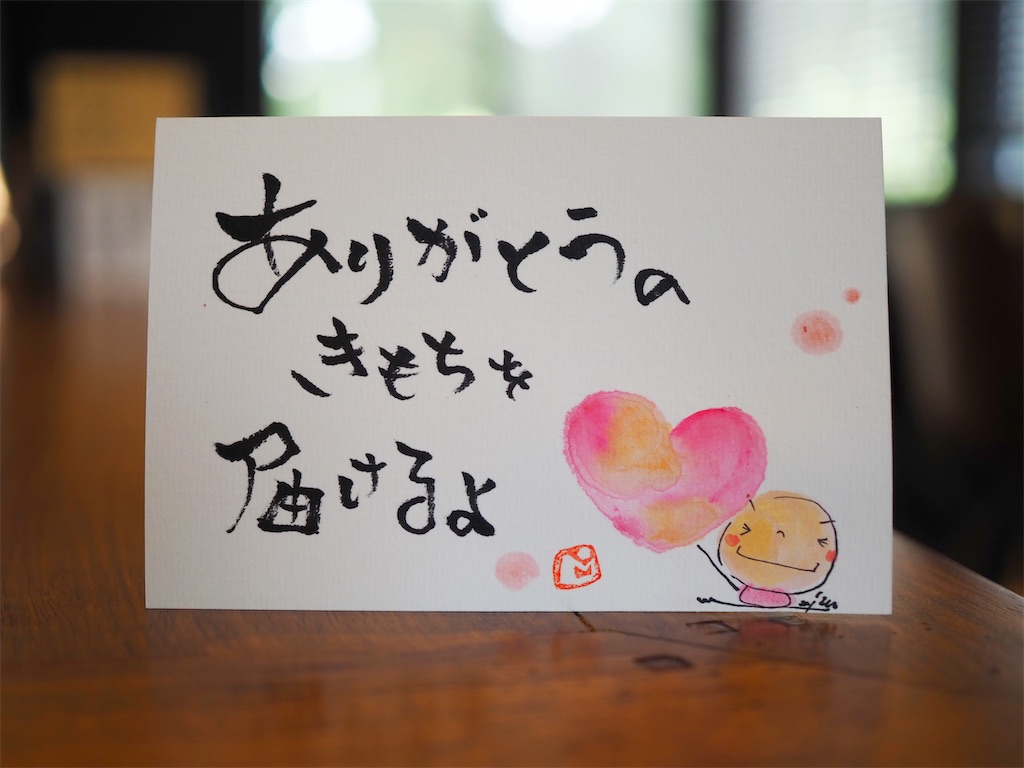 ありがとうの
きもちを
届けるよ